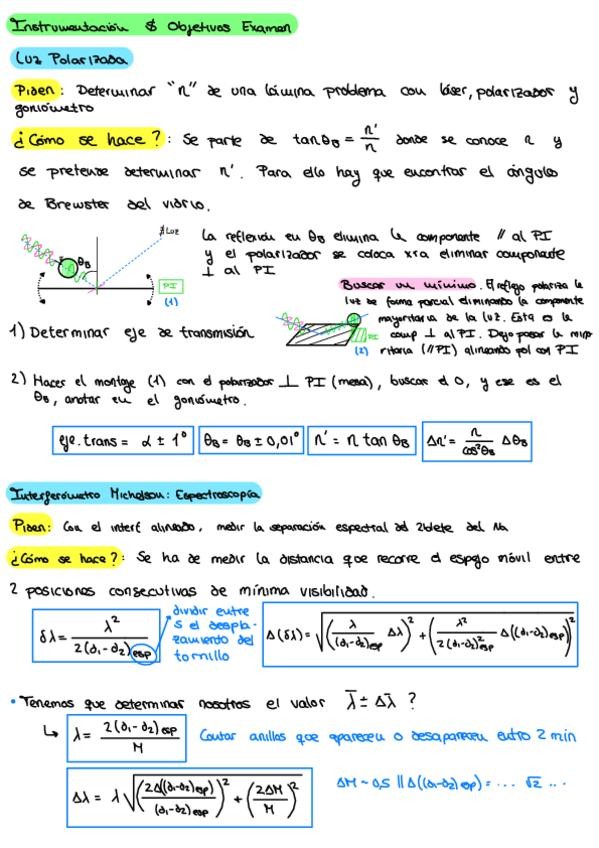 Instrumentación & Objetivos Examen
Luz Polarizada
Piden: Determinar "n" de una lámina problema con láser, polarizador y
goniómetro
¿Cómo se hace?: Se parte de tanθ_B = n'/n donde se conoce n y
se pretende determinar n'. Para ello hay que encontrar el ángulo
de Brewster del vidrio.
θ_B
Luz
PI
(1)
La reflexión en θ_B elimina la componente // al PI
y el polarizador se coloca xra eliminar componente
⊥ al PI
Buscar un mínimo. El reflejo polariza la
luz de forma parcial eliminando la componente
mayoritaria de la luz. Esta es la
comp ⊥ al PI. Dejo pasar la mino
ritaria (// PI) alineando pol con PI
PI
(2)
1) Determinar eje de transmisión
2) Hacer el montaje (1) con el polarizador ⊥ PI (mesa), buscar el 0, y ese es el
θ_B, anotar en el goniómetro.
eje.trans = α ± 1°
θ_B = θ_B ± 0,01°
n' = n tan θ_B
Δn' = n/cos²θ_B Δθ_B
Interferómetro Michelson: Espectroscopía
Piden: Con el interf alineado, medir la separación espectral del 2blete del Na
¿Cómo se hace?: Se ha de medir la distancia que recorre el espejo móvil entre
2 posiciones consecutivas de mínima visibilidad.
δλ = λ²/2(d₁-d₂)esp
dividir entre
5 el despla-
zamiento del
tornillo
Δ(δλ) = √((λ/(d₁-d₂)esp Δλ)² + (λ²/2(d₁-d₂)²esp Δ((d₁-d₂)esp))²)
• Tenemos que determinar nosotros el valor λ̄ ± Δλ̄ ?
↳ λ = 2(d₁-d₂)esp/M
Contar anillos que aparecen o desaparecen entre 2 min
Δλ = λ√((2Δ((d₁-d₂)esp)/(d₁-d₂)esp)² + (2ΔM/M)²)
ΔM ~ 0,5 // Δ((d₁-d₂)esp) = ... √2 ...